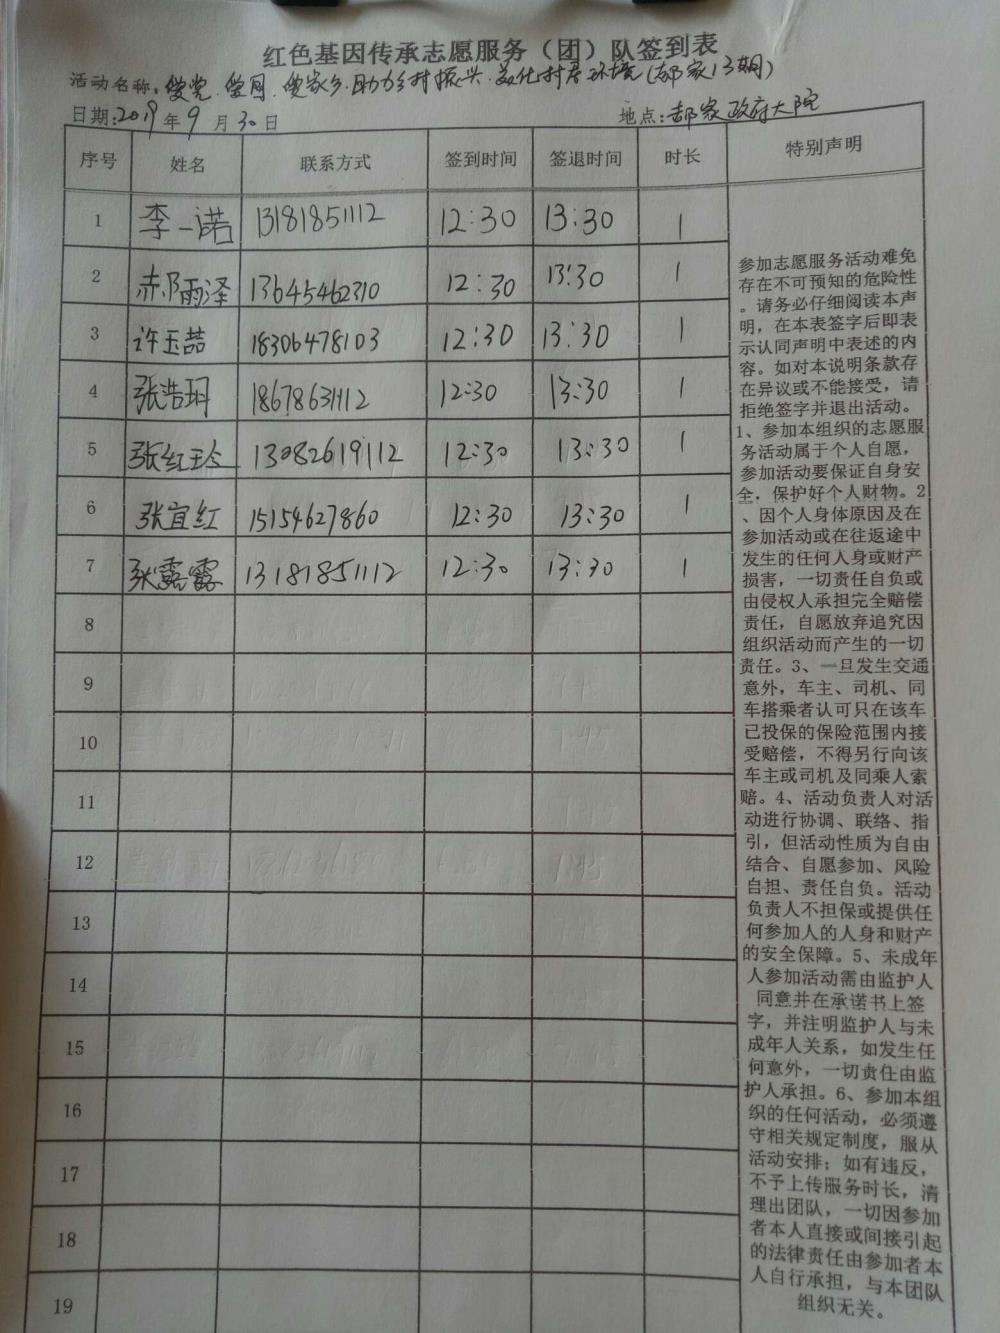 红色基因传承志愿服务（团）队签到表
活动名称：爱党、爱国、爱家乡、助力乡村振兴、美化村居环境（郝家13期）
日期：2019年9月30日 地点：郝家政府大院
序号 姓名 联系方式 签到时间 签退时间 时长 特别声明
1 李一诺 13181851112 12:30 13:30 1
2 郝雨泽 13645462310 12:30 13:30 1
3 许玉喆 18306478103 12:30 13:30 1
4 张浩玥 18678631112 12:30 13:30 1
5 张红玲 13082619112 12:30 13:30 1
6 张宜红 15154627860 12:30 13:30 1
7 张露露 13181851112 12:30 13:30 1
8
9
10
11
12
13
14
15
16
17
18
19
参加志愿服务活动难免
存在不可预知的危险性
。请务必仔细阅读本声
明，在本表签字后即表
示认同声明中表述的内
容。如对本说明条款存
在异议或不能接受，请
拒绝签字并退出活动。
1、参加本组织的志愿服
务活动属于个人自愿，
参加活动要保证自身安
全，保护好个人财物。2
、因个人身体原因及在
参加活动或在往返途中
发生的任何人身或财产
损害，一切责任自负或
由侵权人承担完全赔偿
责任，自愿放弃追究因
组织活动而产生的一切
责任。3、一旦发生交通
意外，车主、司机、同
车搭乘者认可只在该车
已投保的保险范围内接
受赔偿，不得另行向该
车主或司机及同乘人索
赔。4、活动负责人对活
动进行协调、联络、指
引，但活动性质为自由
结合、自愿参加、风险
自担、责任自负。活动
负责人不担保或提供任
何参加人的人身和财产
的安全保障。5、未成年
人参加活动需由监护人
同意并在承诺书上签
字，并注明监护人与未
成年人关系，如发生任
何意外，一切责任由监
护人承担。6、参加本组
织的任何活动，必须遵
守相关规定制度，服从
活动安排；如有违反，
不予上传服务时长，清
理出团队，一切因参加
者本人直接或间接引起
的法律责任由参加者本
人自行承担，与本团队
组织无关。